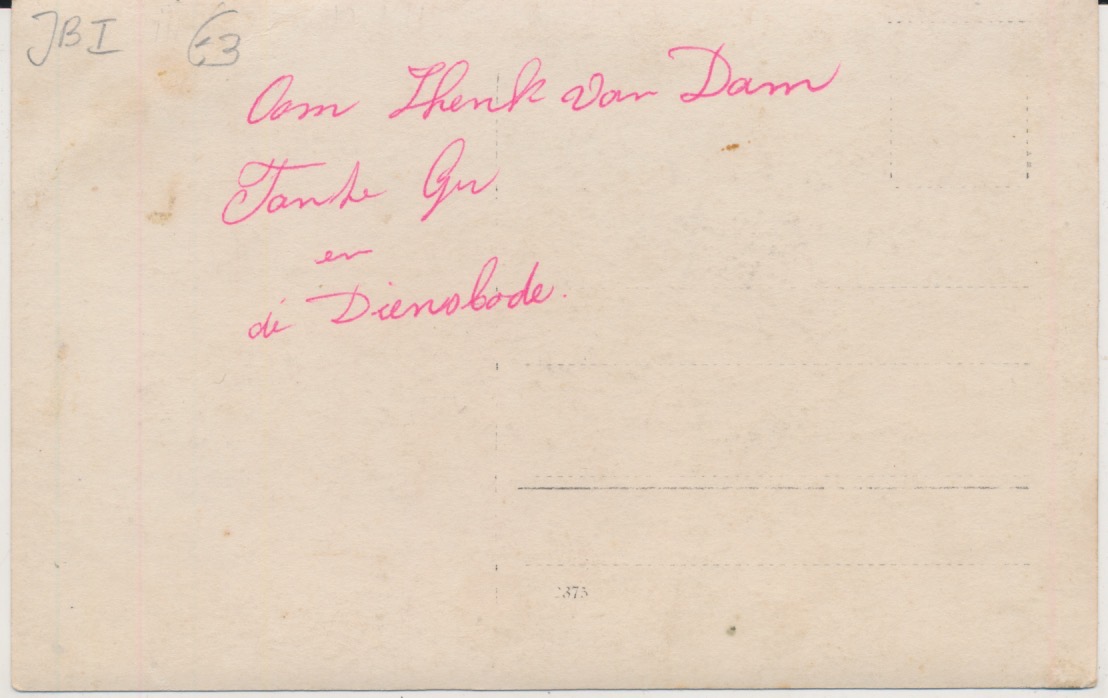 JBI 63
Oom Henk van Dam
Tante Gu
en
de Diensbode.